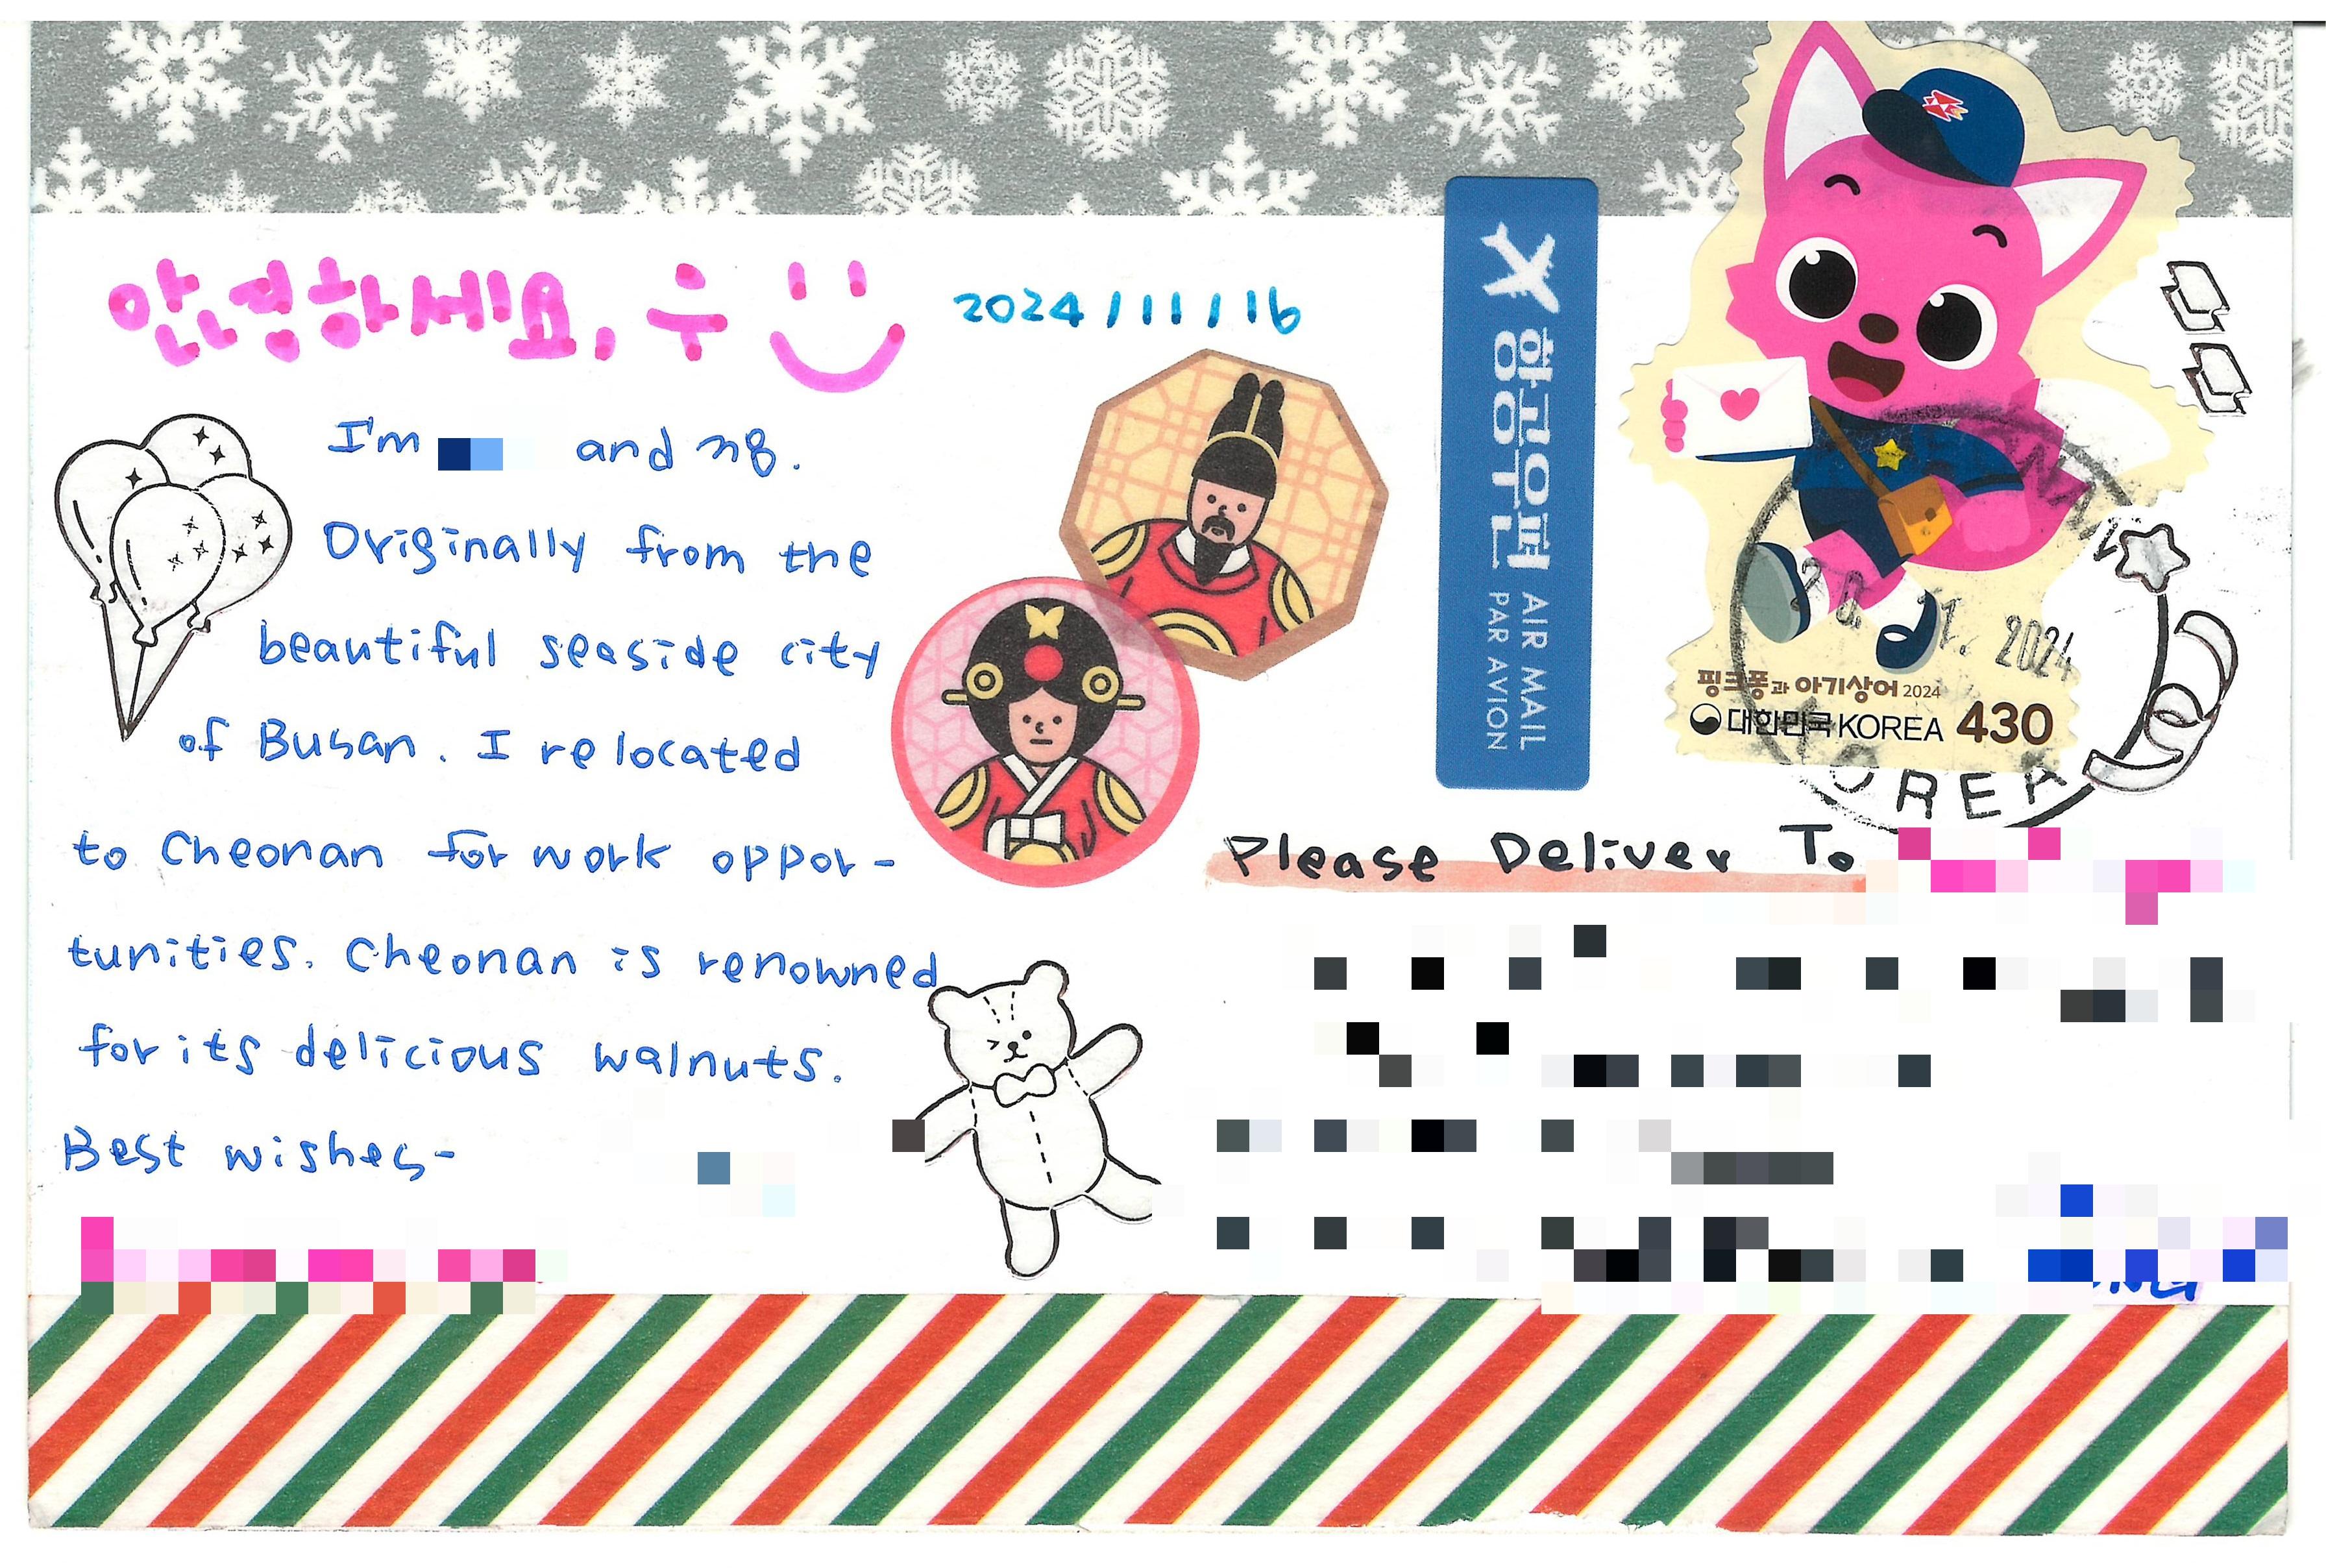 안녕하세요, 우
2024/11/16
I'm and 278.
Originally from the
beautiful seaside city
of Busan. I relocated
to Cheonan for work oppor-
tunities. Cheonan is renowned
for its delicious walnuts.
Best wishes-
항공우편
AIR MAIL
PAR AVION
핑크퐁과 아기상어 2024
대한민국 KOREA 430
11. 2024
KOREA
Please Deliver To